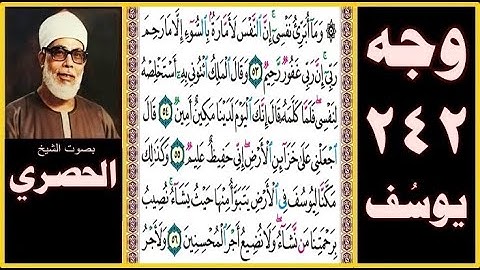 وجه
٢٤٢
يوسف
۞ وَمَا أُبَرِّئُ نَفْسِي ۚ إِنَّ النَّفْسَ لَأَمَّارَةٌ بِالسُّوءِ إِلَّا مَا رَحِمَ
رَبِّي ۚ إِنَّ رَبِّي غَفُورٌ رَحِيمٌ ٥٣ وَقَالَ الْمَلِكُ ائْتُونِي بِهِ أَسْتَخْلِصْهُ
لِنَفْسِي ۖ فَلَمَّا كَلَّمَهُ قَالَ إِنَّكَ الْيَوْمَ لَدَيْنَا مَكِينٌ أَمِينٌ ٥٤ قَالَ
اجْعَلْنِي عَلَى خَزَائِنِ الْأَرْضِ ۖ إِنِّي حَفِيظٌ عَلِيمٌ ٥٥ وَكَذَلِكَ
مَكَّنَّا لِيُوسُفَ فِي الْأَرْضِ يَتَبَوَّأُ مِنْهَا حَيْثُ يَشَاءُ ۚ نُصِيبُ
بِرَحْمَتِنَا مَنْ نَشَاءُ ۖ وَلَا نُضِيعُ أَجْرَ الْمُحْسِنِينَ ٥٦ وَلَأَجْرُ
بصوت الشيخ
الحصري